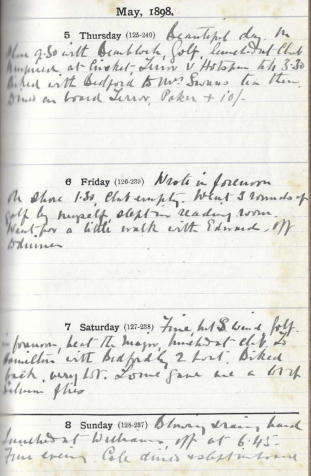 May, 1898.
5 Thursday (125-240) Beautiful day. On
shore 9.30 with golf, lunched at Club
Umpired at Cricket, Terror v Hotspur till 3.30
Biked with Bedford to Mrs Swans tea there.
Dined on board Terror, Poker + 10/-
6 Friday (126-239) Wrote in forenoon
On shore 1.30, Club empty. Went 3 rounds of
golf by myself, slept in reading room.
Went for a little walk with Edward, off
to dinner
7 Saturday (127-238) Fine, but S. wind, golf
in forenoon, beat the Major, lunched at club. To
Hamilton with Bedford by 2 boat. Biked
back, very hot. gave me a lot of
flies
8 Sunday (128-237) Blowing & raining hard
lunched at Williams, off at 6.45.
Fine evening. Cole dined & slept in